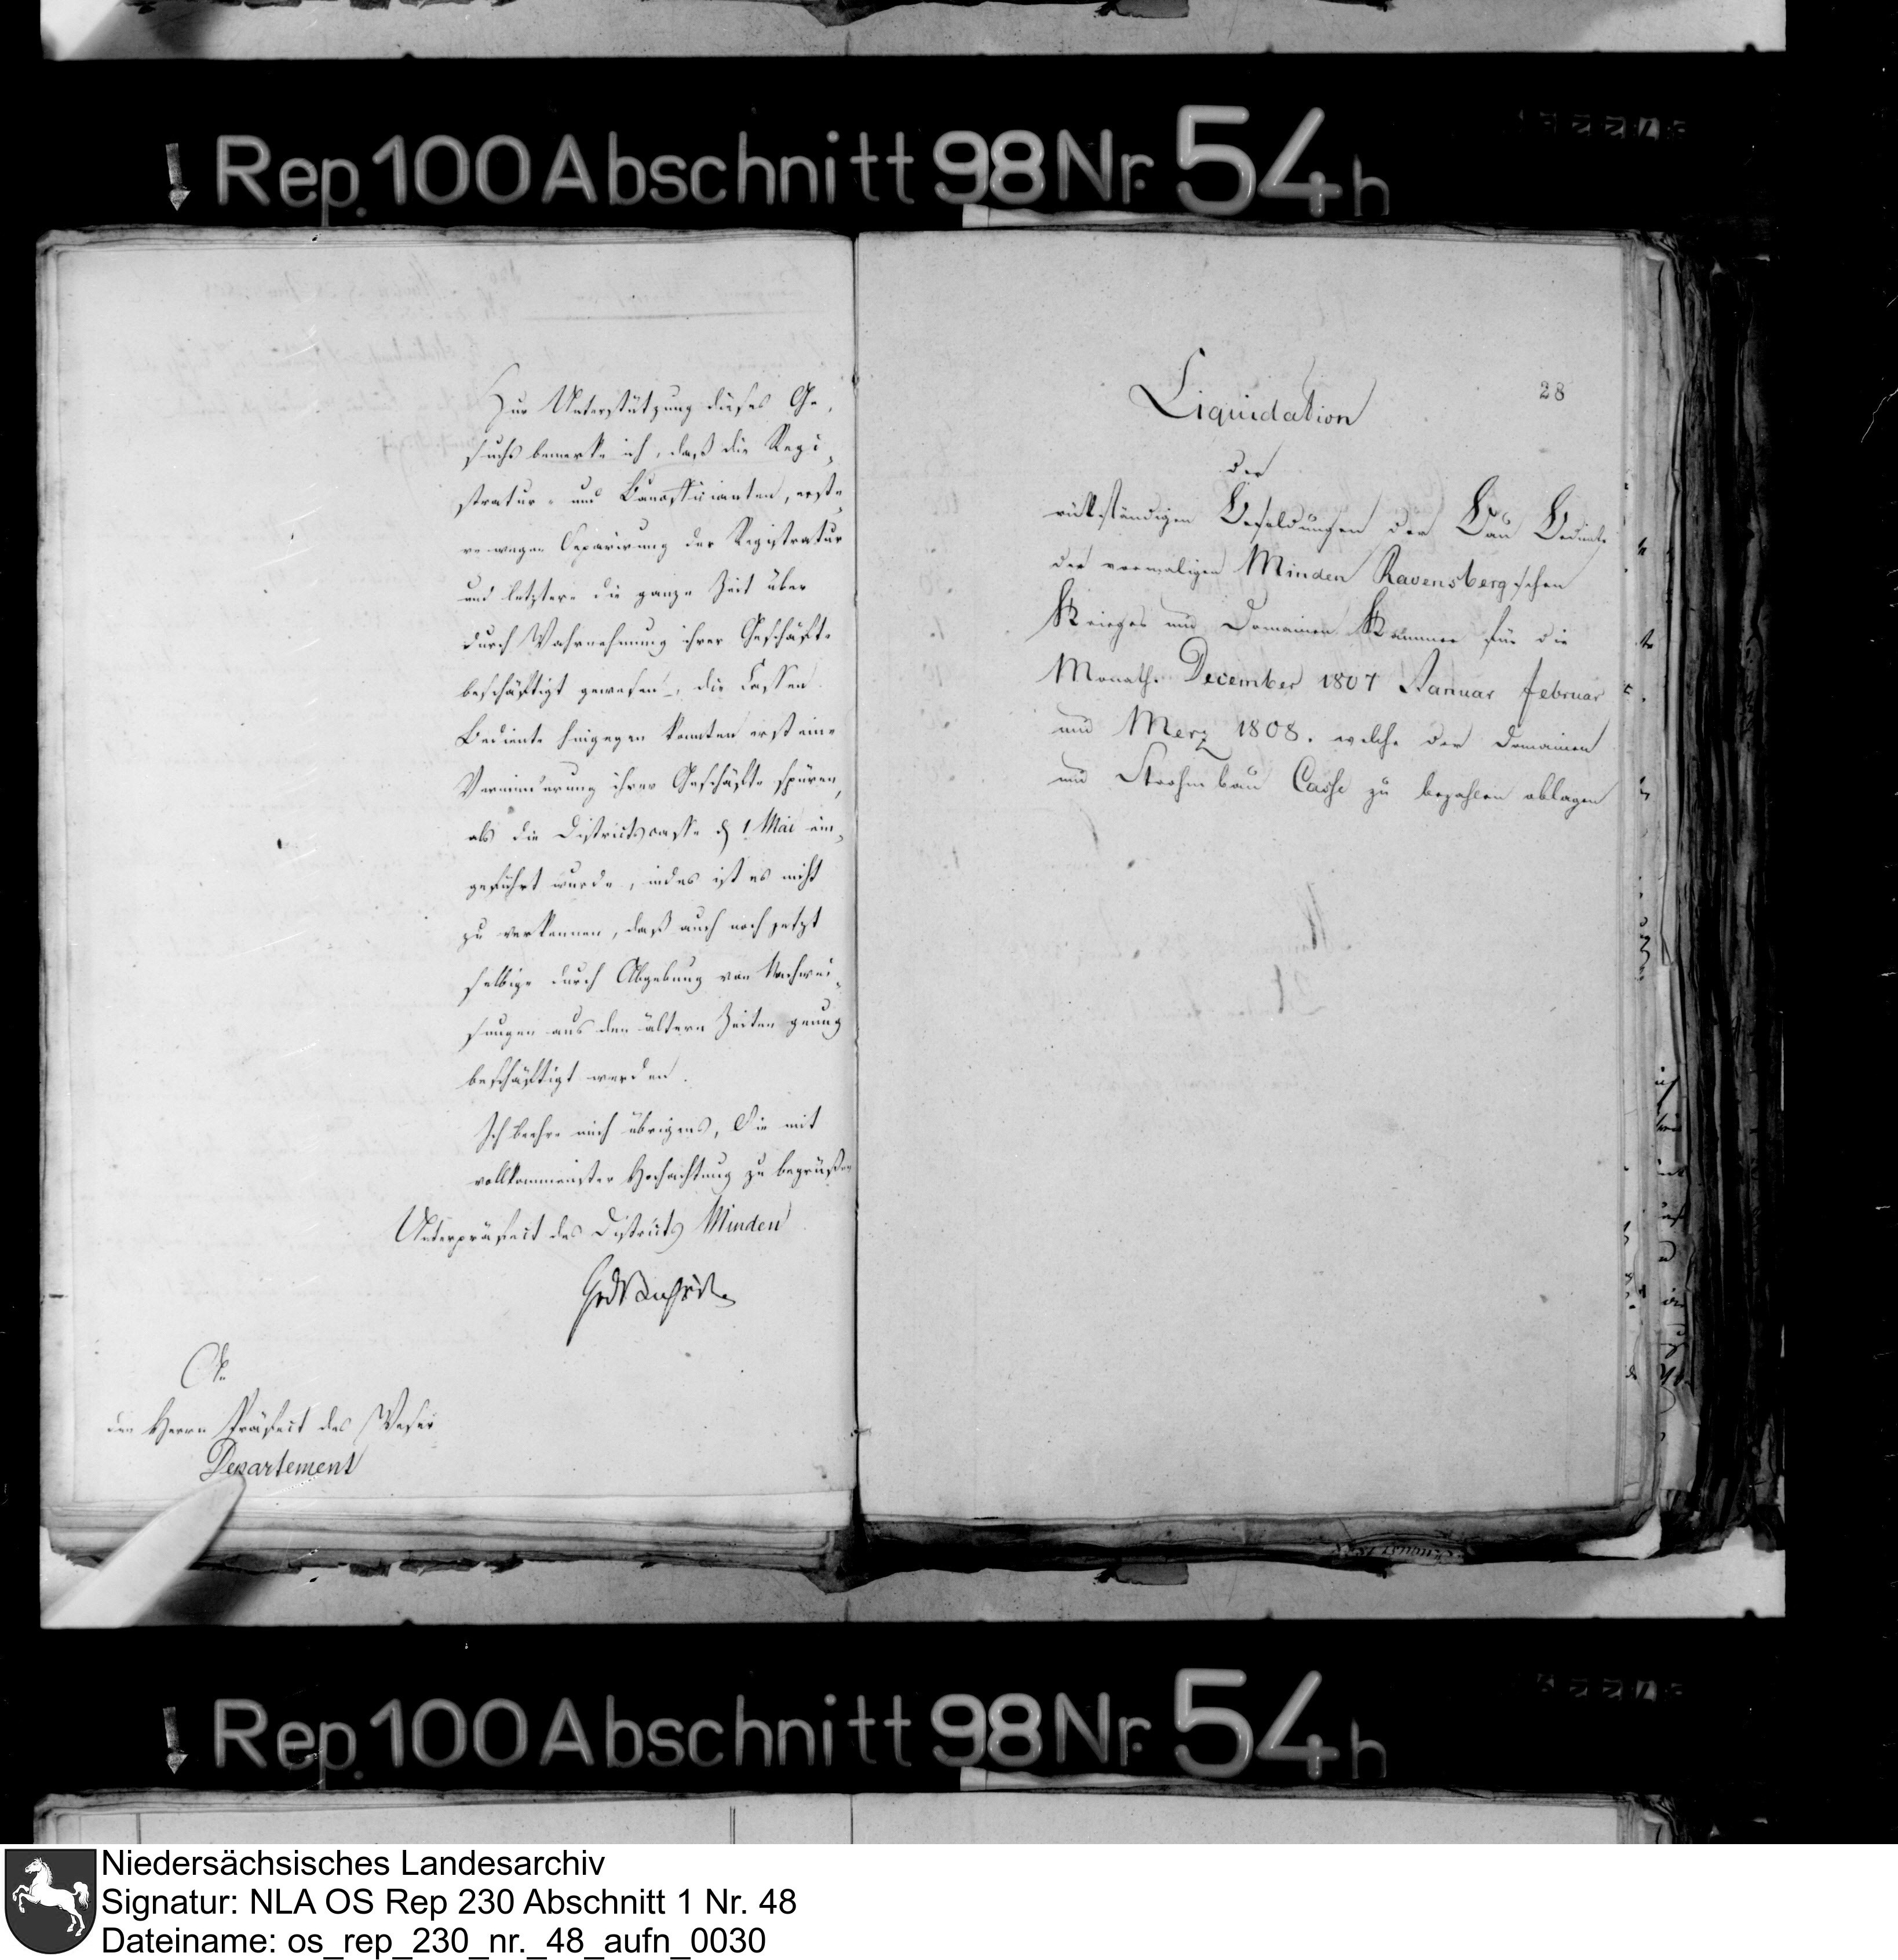 Rep. 100 Abschnitt 98 Nr. 54 h
Zur Unterstützung dieses Ge,
suchs bemerke ich, daß die Regi,
stratur- und Bauofficianten, erste,
re wegen Separirung der Registratur
und letztere die ganze Zeit über
durch Wahrnehmung ihrer Geschäfte
beschäftigt gewesen, die Cassen
Bediente hingegen konnten erst eine
Verminderung ihrer Geschäfte spüren,
als die Districtscasse d 1 Mai ein,
geführt wurde, indes ist es nicht
zu verkennen, daß auch noch jetzt
selbige durch Abgebung von Nachwei,
sungen aus den ältern Zeiten genug
beschäftigt werden.
Ich beehre mich übrigens, Sie mit
vollkommenster Hochachtung zu begrüßen
Unterpräfect des Districts Minden
An
den Herrn Präfect des Weser
Departement
28
Liquidation
der
rückständigen Besoldungen der Bau Bediente
der vormaligen Minden Ravensbergschen
Krieges und Domainen Kammer für die
Monathe December 1807 Januar februar
und Merz 1808. welche der Domainen
und Strohmbau Casse zu bezahlen oblagen
Rep. 100 Abschnitt 98 Nr. 54 h
Niedersächsisches Landesarchiv
Signatur: NLA OS Rep 230 Abschnitt 1 Nr. 48
Dateiname: os_rep_230_nr._48_aufn_0030